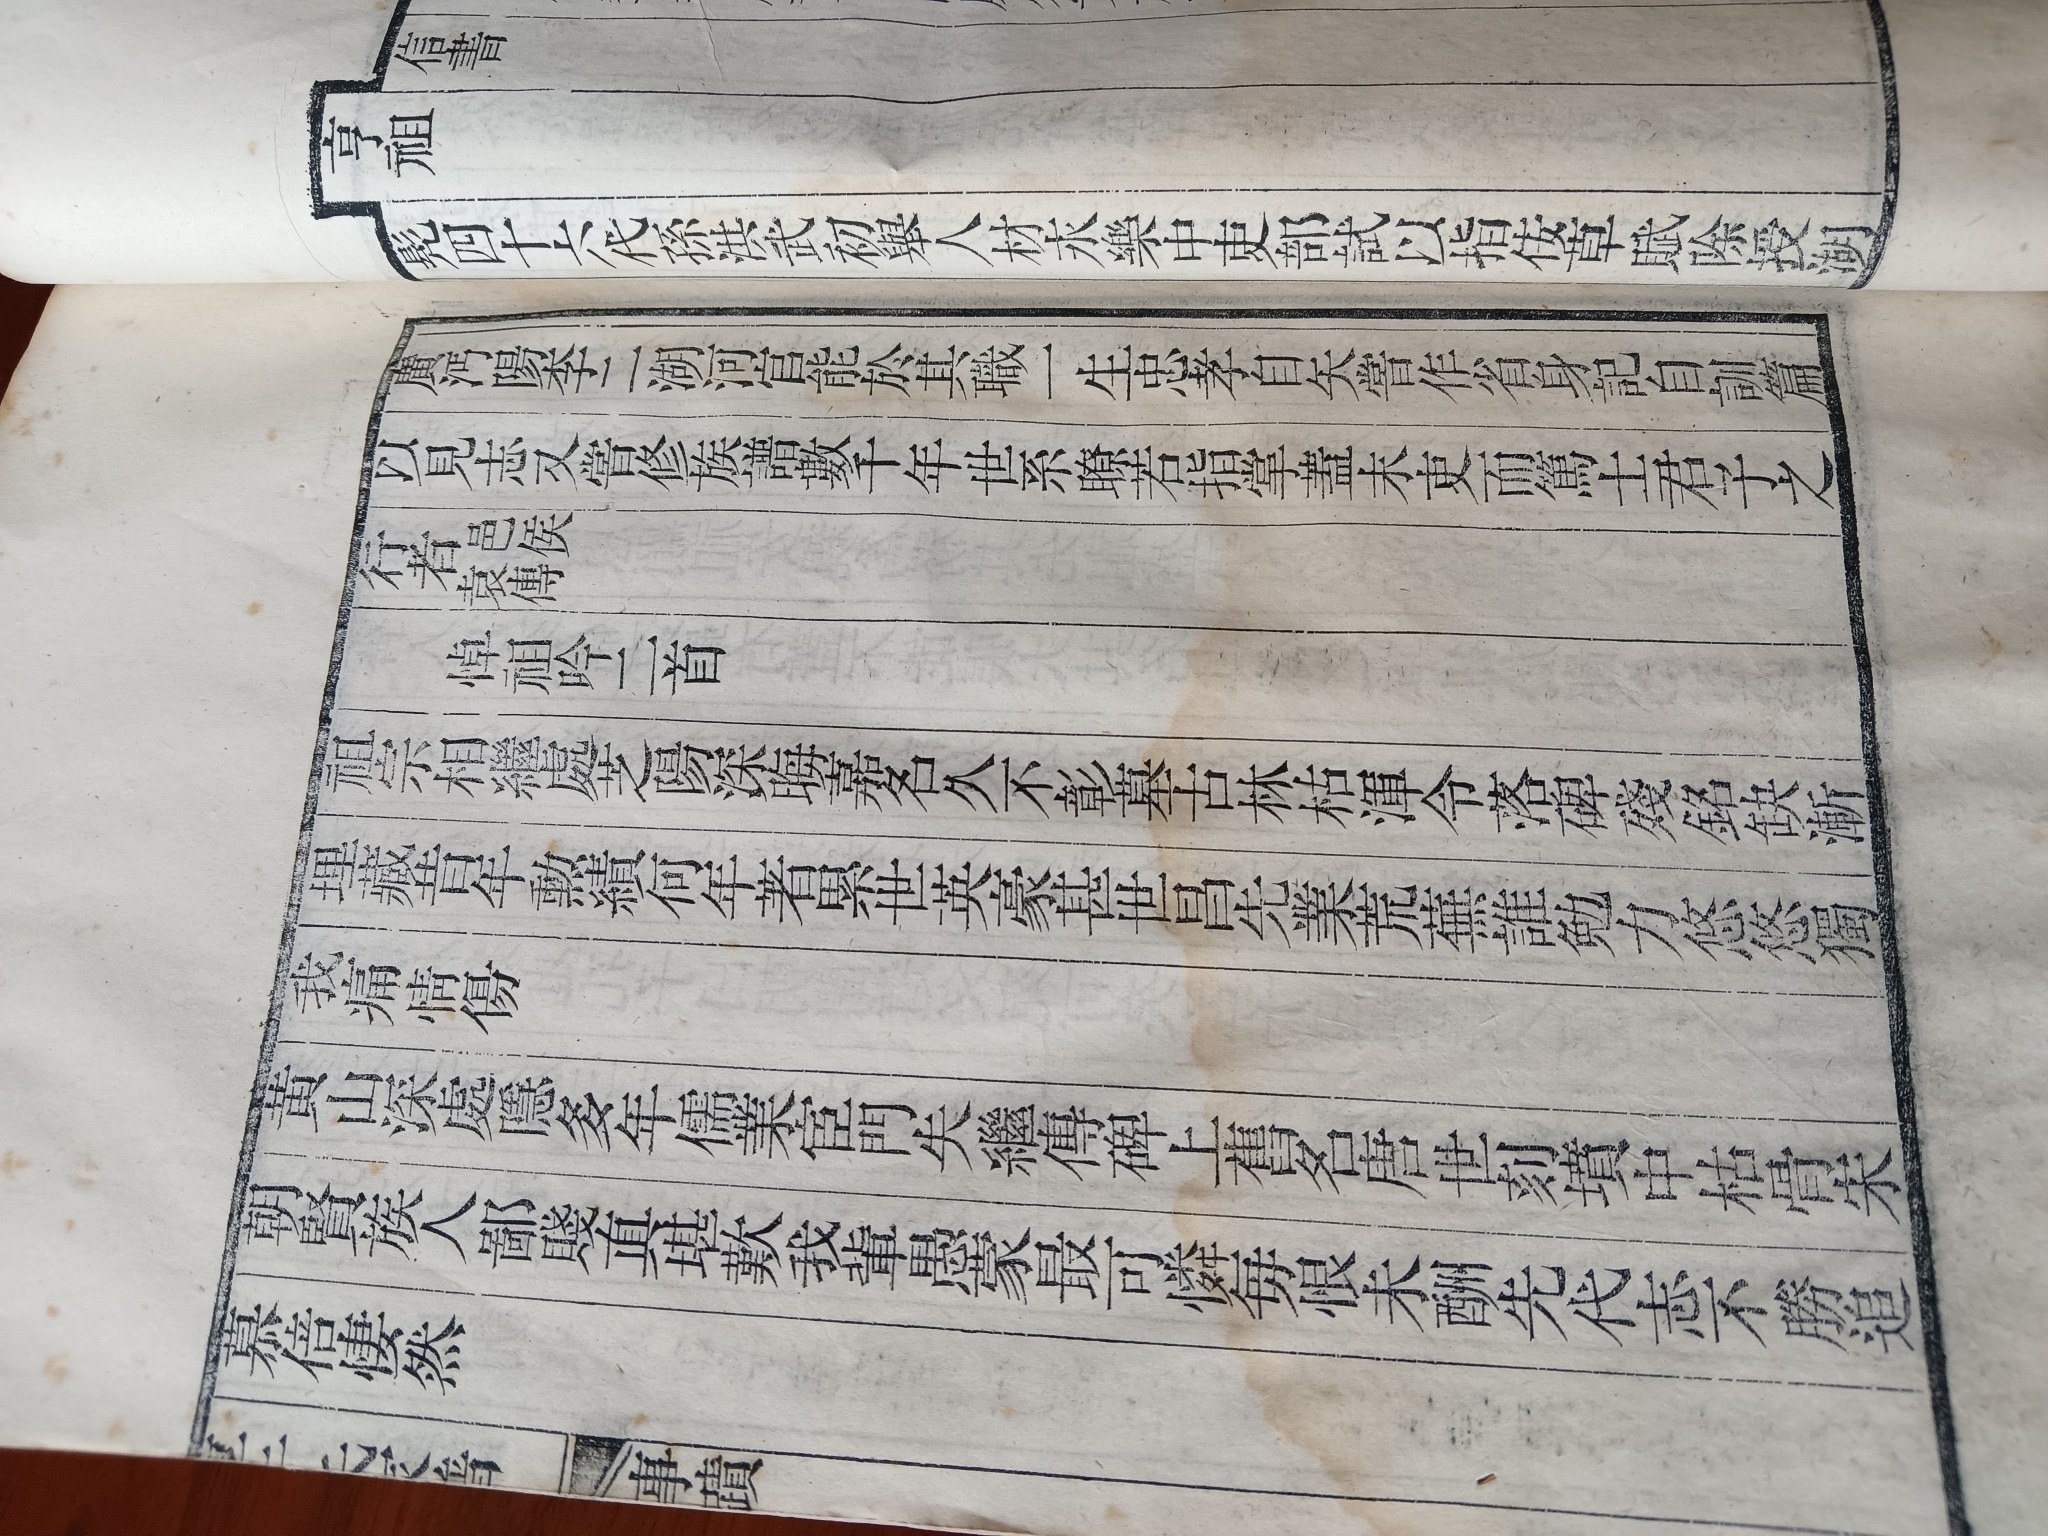 信書
亨祖
髟四十六代孫洪武初舉人材永樂中吏部試以指佞草賦除授湖
廣沔陽李二湖河官能於其職一生忠孝自矢嘗作省身記自訓篇
以見志又嘗修族譜數千年世系瞭若指掌蓋未吏而篤士君子之
行者邑侯袁傳
悼祖吟二首
祖宗相繼處芝陽深晦嘉名久不彰墓古林枯渾令落碑殘銘缺漸
埋藏昔年勳績何年著累世英豪世昌先業荒蕪誰勉力悠悠獨
我痛情傷
黃山深處隱多年儒業宦門失繼傳碑上舊名唐世刻墳中枯骨宋
朝賢族人鄙賤真堪歎我輩愚蒙最可憐每恨未酬先代志不勝追
慕倍悽然
事蹟